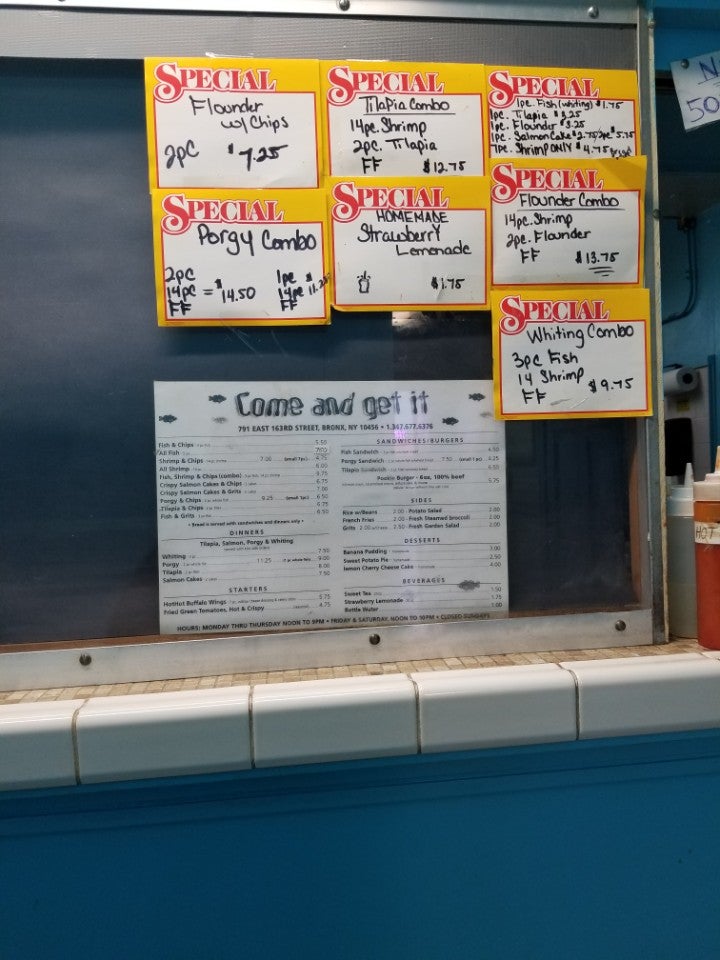 SPECIAL
Flounder
w/Chips
2pc $7.25
SPECIAL
Tilapia Combo
14pc. Shrimp
2pc. Tilapia
FF $12.75
SPECIAL
1pc. Fish (whiting) $1.75
1pc. Tilapia $3.25
1pc. Flounder $3.25
1pc. Salmon Cake $2.75/2pc $5.75
7pc. Shrimp ONLY $4.75
SPECIAL
Porgy Combo
2pc 1pc
14pc = $14.50 14pc
FF FF
SPECIAL
HOMEMADE
Strawberry
Lemonade
$1.75
SPECIAL
Flounder Combo
14pc. Shrimp
2pc. Flounder
FF $13.75
SPECIAL
Whiting Combo
3pc Fish
14 Shrimp
FF $9.75
N
50
HOT
Come and get it
791 EAST 163RD STREET, BRONX, NY 10456 • 1.347.677.6376
Fish & Chips 5.50
All Fish
Shrimp & Chips 7.00 (small 7pc) 4.75
All Shrimp 6.00
Fish, Shrimp & Chips (combo)
Crispy Salmon Cakes & Chips
Crispy Salmon Cakes & Grits
Porgy & Chips 9.25 (small 1pc) 6.50
Tilapia & Chips
Fish & Grits 6.50
• Bread is served with sandwiches and dinners only •
DINNERS
Tilapia, Salmon, Porgy & Whiting
Whiting 7.50
Porgy 11.25 9.00
Tilapia 8.00
Salmon Cakes 7.50
STARTERS
HotHot Buffalo Wings 5.75
Fried Green Tomatoes, Hot & Crispy 4.75
SANDWICHES/BURGERS
Fish Sandwich 4.50
Porgy Sandwich 7.50 (small 1 pc)
Tilapia Sandwich
Pookie Burger - 6oz, 100% beef
5.75
SIDES
Rice w/Beans 3.00 Potato Salad 2.00
French Fries 2.00 Fresh Steamed broccoli 2.00
Grits 2.00 Fresh Garden Salad 2.00
DESSERTS
Banana Pudding 3.00
Sweet Potato Pie 2.50
Lemon Cherry Cheese Cake 4.00
BEVERAGES
Sweet Tea 1.50
Strawberry Lemonade 1.75
Bottle Water
HOURS: MONDAY THRU THURSDAY NOON TO 9PM • FRIDAY & SATURDAY, NOON TO 10PM • CLOSED SUNDAYS